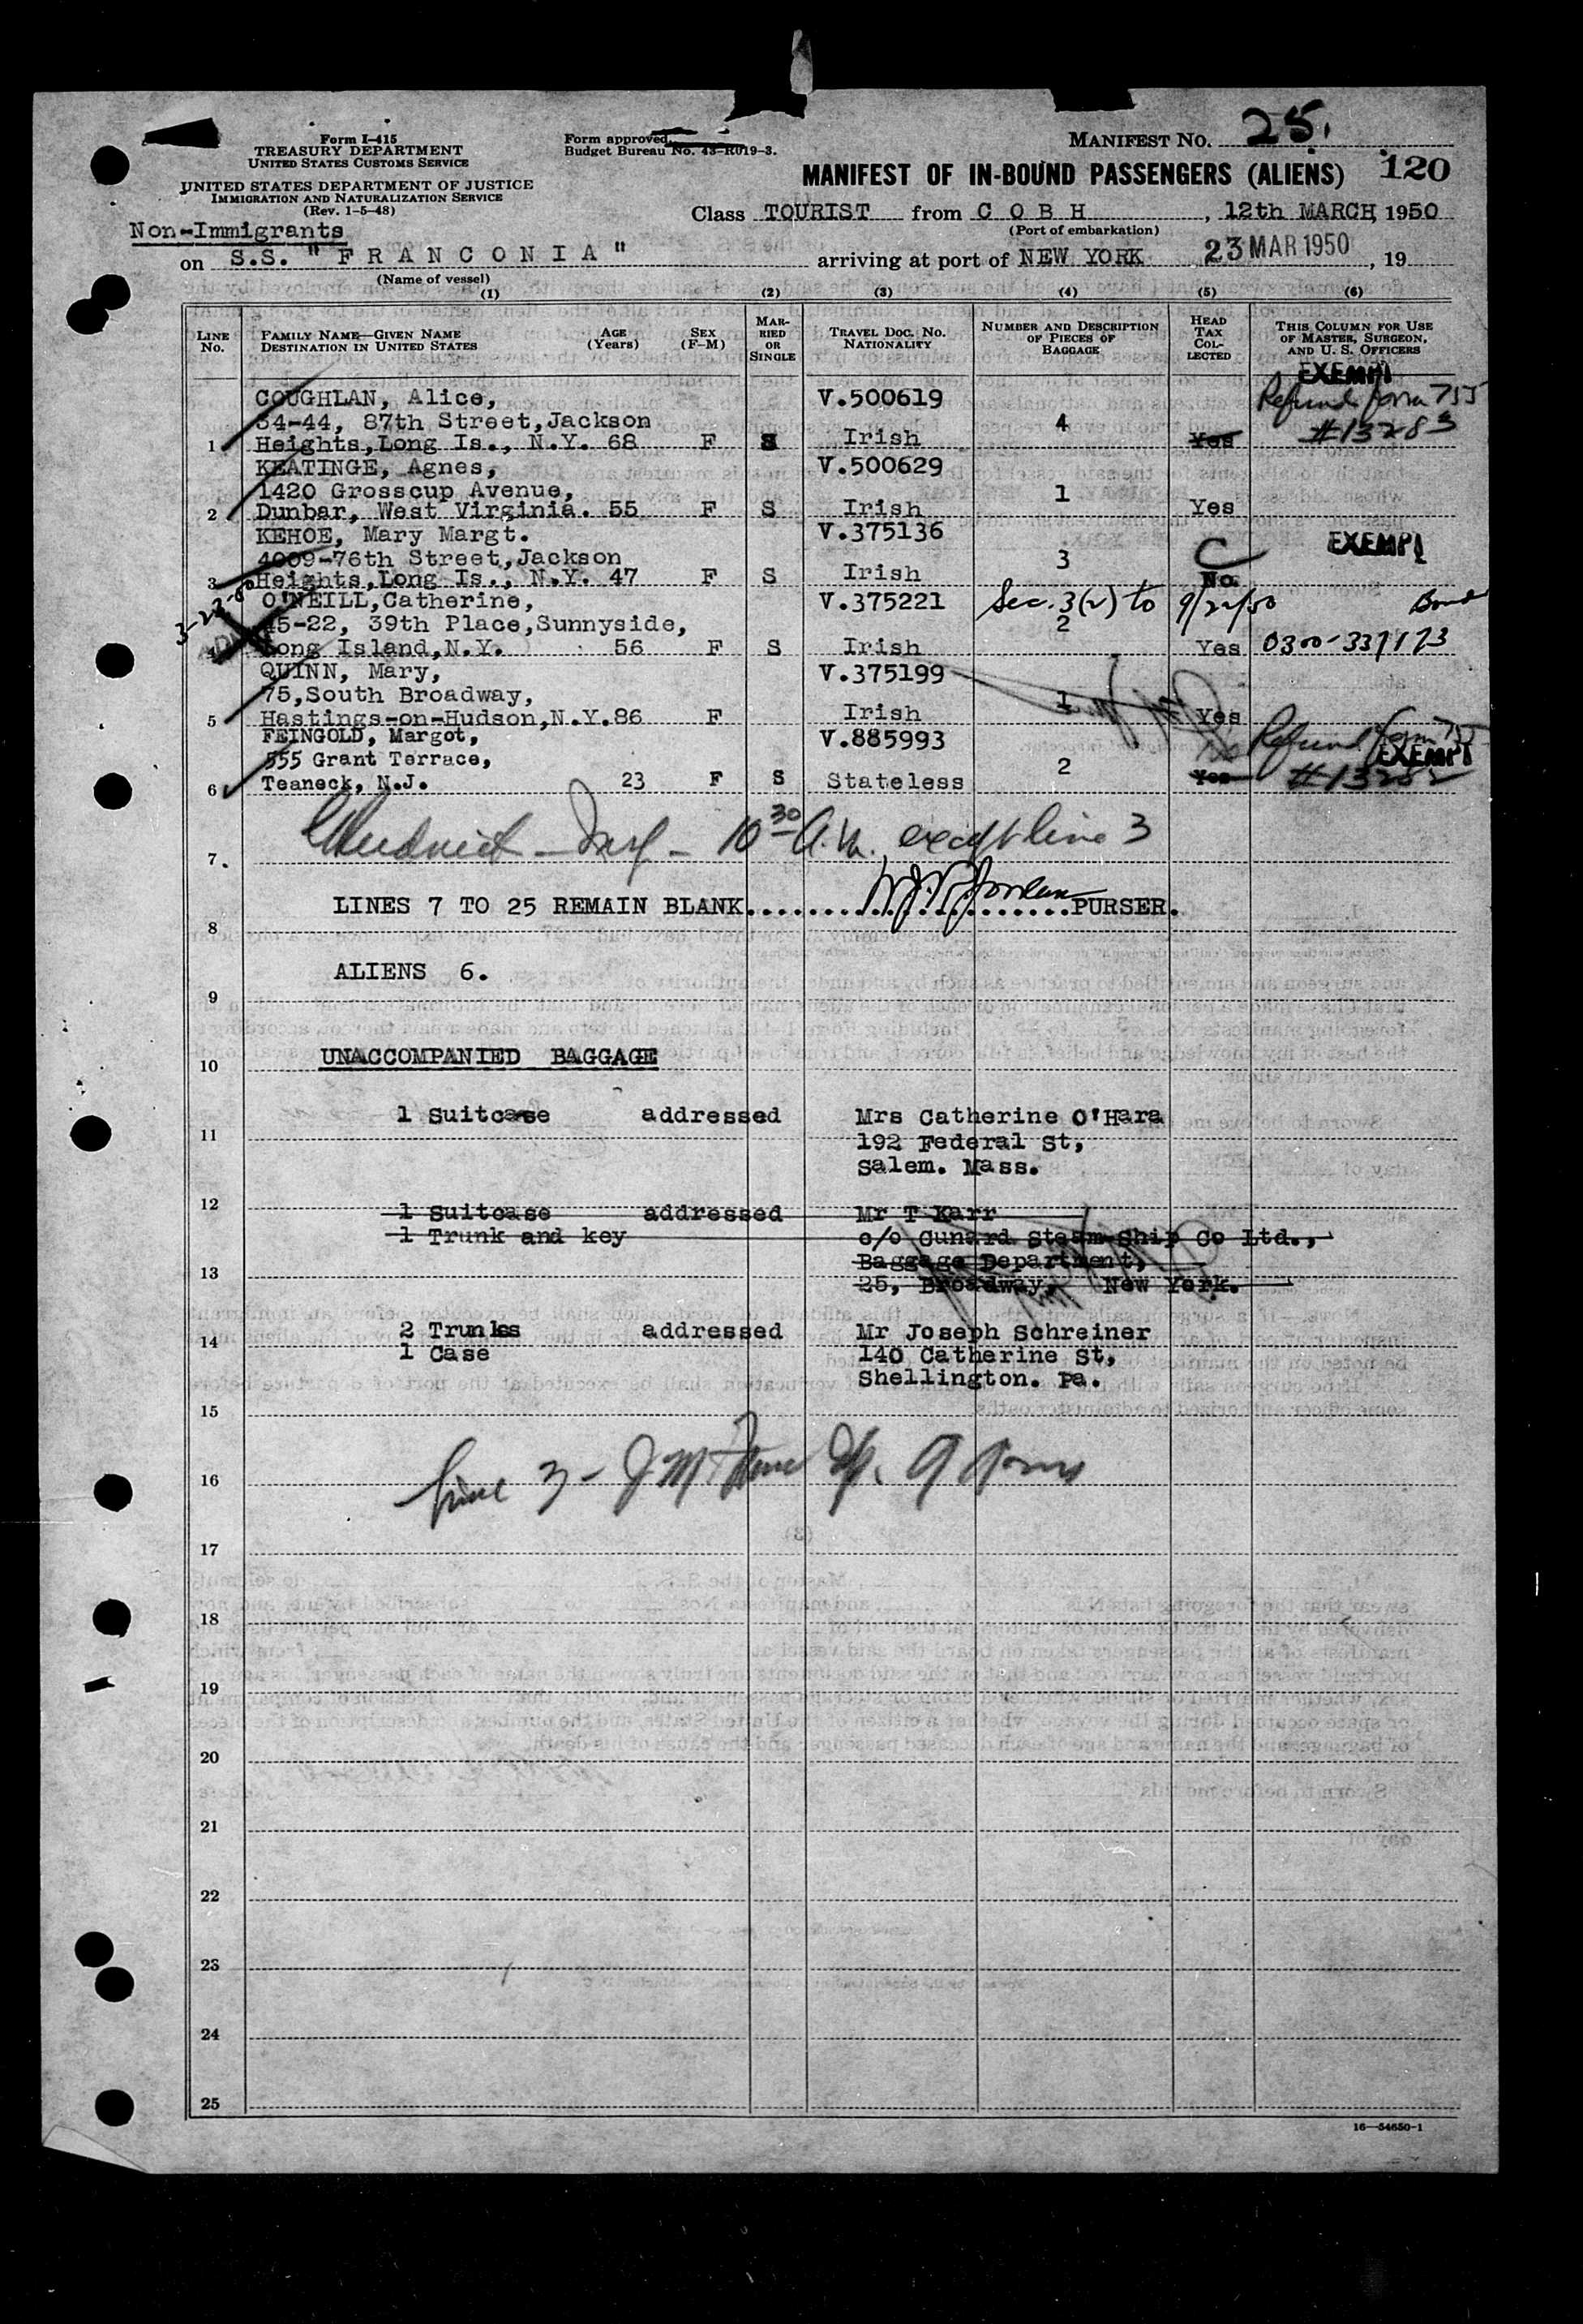 Form I-415
TREASURY DEPARTMENT
UNITED STATES CUSTOMS SERVICE
UNITED STATES DEPARTMENT OF JUSTICE
IMMIGRATION AND NATURALIZATION SERVICE
(Rev. 1-5-48)
Form approved.
Budget Bureau No. 43-R019-3.
MANIFEST NO. 25.
MANIFEST OF IN-BOUND PASSENGERS (ALIENS) 120
Class TOURIST from C O B H , 12th MARCH, 1950
(Port of embarkation)
Non-Immigrants
on S.S. "F R A N C O N I A" arriving at port of NEW YORK 23 MAR 1950, 19
(Name of vessel)
(1) (2) (3) (4) (5) (6)
LINE No. FAMILY NAME—GIVEN NAME DESTINATION IN UNITED STATES AGE (Years) SEX (F-M) MARRIED OR SINGLE TRAVEL DOC. NO. NATIONALITY NUMBER AND DESCRIPTION OF PIECES OF BAGGAGE HEAD TAX COLLECTED THIS COLUMN FOR USE OF MASTER, SURGEON, AND U. S. OFFICERS
EXEMPT
COUGHLAN, Alice, V.500619 Refund form 755
34-44, 87th Street, Jackson 4 #13283
1 Heights, Long Is., N.Y. 68 F S Irish Yes
KEATINGE, Agnes, V.500629
1420 Grosscup Avenue, 1
2 Dunbar, West Virginia. 55 F S Irish Yes
KEHOE, Mary Margt. V.375136 EXEMPT
4009-76th Street, Jackson 3 C
3 Heights, Long Is., N.Y. 47 F S Irish No
3-23-50
O'NEILL, Catherine, V.375221 Sec. 3(2) to 9/22/50 Bond
45-22, 39th Place, Sunnyside, 2
4 Long Island, N.Y. 56 F S Irish Yes 0300-337173
QUINN, Mary, V.375199
75, South Broadway, 1
5 Hastings-on-Hudson, N.Y. 86 F Irish Yes
FEINGOLD, Margot, V.885993 No Refund form 755
555 Grant Terrace, 2 EXEMPT
6 Teaneck, N.J. 23 F S Stateless Yes #13282
10 30 A.M. except line 3
7
LINES 7 TO 25 REMAIN BLANK.............................PURSER.
8
ALIENS 6.
9
UNACCOMPANIED BAGGAGE
10
1 Suitcase addressed Mrs Catherine O'Hara
11
192 Federal St,
Salem. Mass.
12
1 Suitcase addressed Mr T Karr
1 Trunk and key c/o Cunard Steam Ship Co Ltd.,
Baggage Department,
13
25, Broadway, New York.
2 Trunks addressed Mr Joseph Schreiner
14
1 Case 140 Catherine St,
Shellington. Pa.
15
Line 3 -
16
17
18
19
20
21
22
23
24
25
16—54650-1